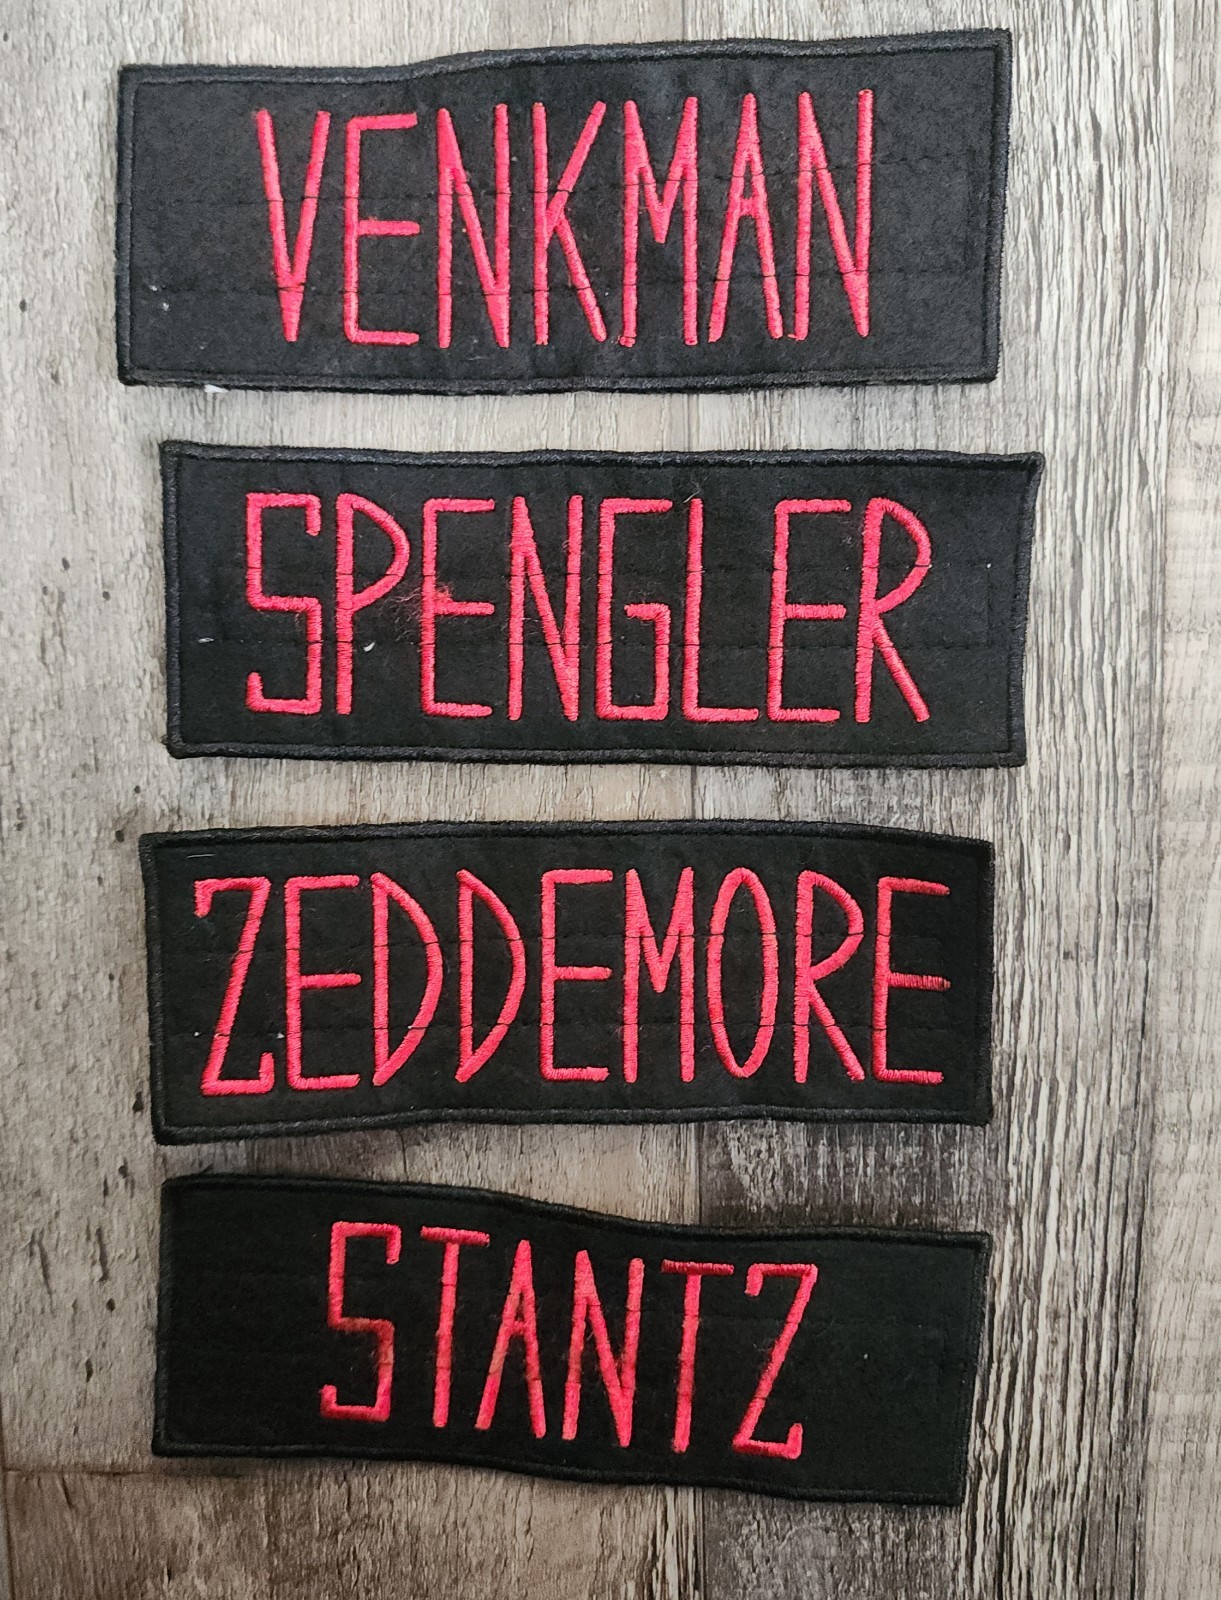 VENKMAN
SPENGLER
ZEDDEMORE
STANTZ